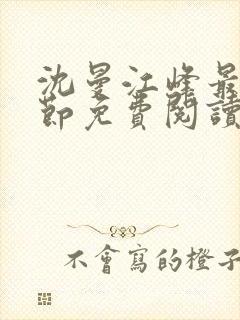 沈曼江峰最
節免費閱讀
不會寫的橙子